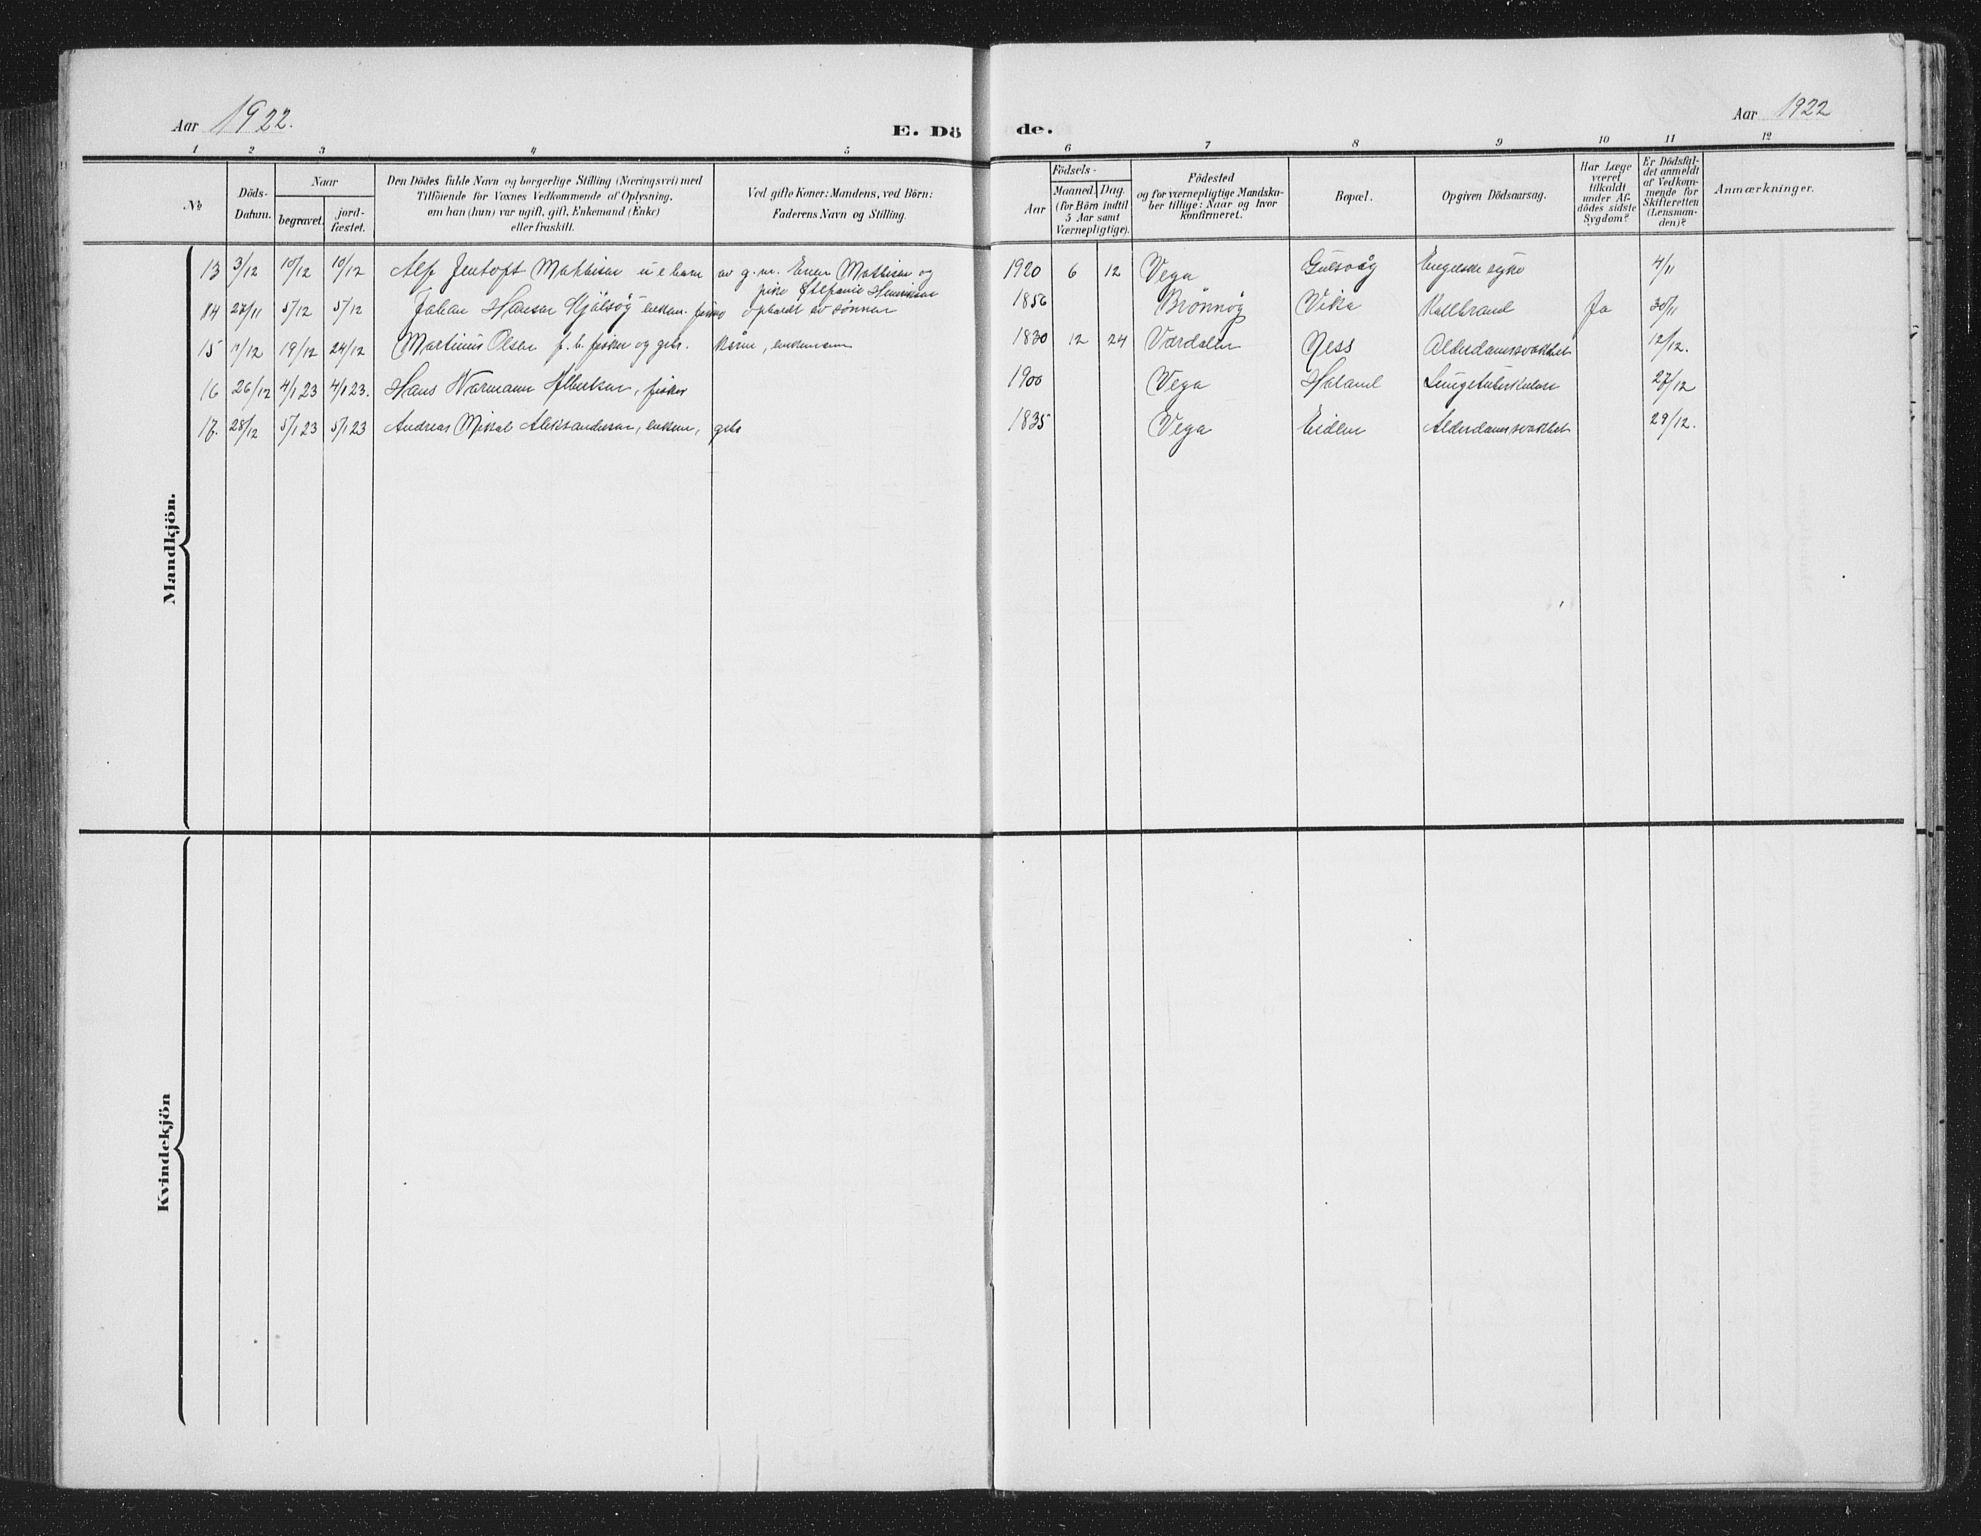 Aar 1922.
E. Dö de.
Aar 1922
1 2 3 4 5 6 7 8 9 10 11 12
№
Döds-
Datum.
Naar
begravet.
jord-
fæstet.
Den Dödes fulde Navn og borgerlige Stilling (Næringsvei) med
Tilföiende for Voxnes Vedkommende af Oplysning,
om han (hun) var ugift, gift, Enkemand (Enke)
eller fraskilt.
Ved gifte Koner: Mandens, ved Börn:
Faderens Navn og Stilling.
Födsels-
Aar
Maaned. Dag.
(for Börn indtil
5 Aar samt
Værnepligtige).
Födested
og for værnepligtige Mandska-
ber tillige: Naar og hvor
konfirmeret.
Bopæl.
Opgiven Dödsaarsag.
Har Læge
været
tilkaldt
under Af-
dödes sidste
Sygdom?
Er Dödsfal-
det anmeldt
af Vedkom-
mende for
Skifteretten
(Lensman-
den)?
Anmærkninger.
Mandkjön.
13 3/12 10/12 10/12 Alf Jentoft Mathisen u e barn av g. m. Mathisen og
pike Stefanie Henriksen
1920 6 12 Vega Gulsvåg Engelske syke 4/11
14 27/11 5/12 5/12 Johan Hansen enkem. fisker ophold av sönner 1856 Brönnöy Vika Kallbrand Ja 30/11
15 11/12 19/12 24/12 Martinus Olsen f. b. fisker og gbr. kårm, enkemann 1830 12 24 Værdalen Ness Alderdomssvakhet 12/12.
16 26/12 4/1 23 4/1 23. Hans Normann Albertsen, fisker 1900 Vega Holand Lungetuberkulose 27/12
17. 28/12 5/1 23 5/1 23 Andreas Mikal Aleksandersen, enkem, gbr 1835 Vega Eidem Alderdomssvakhet 29/12.
Kvindekjön